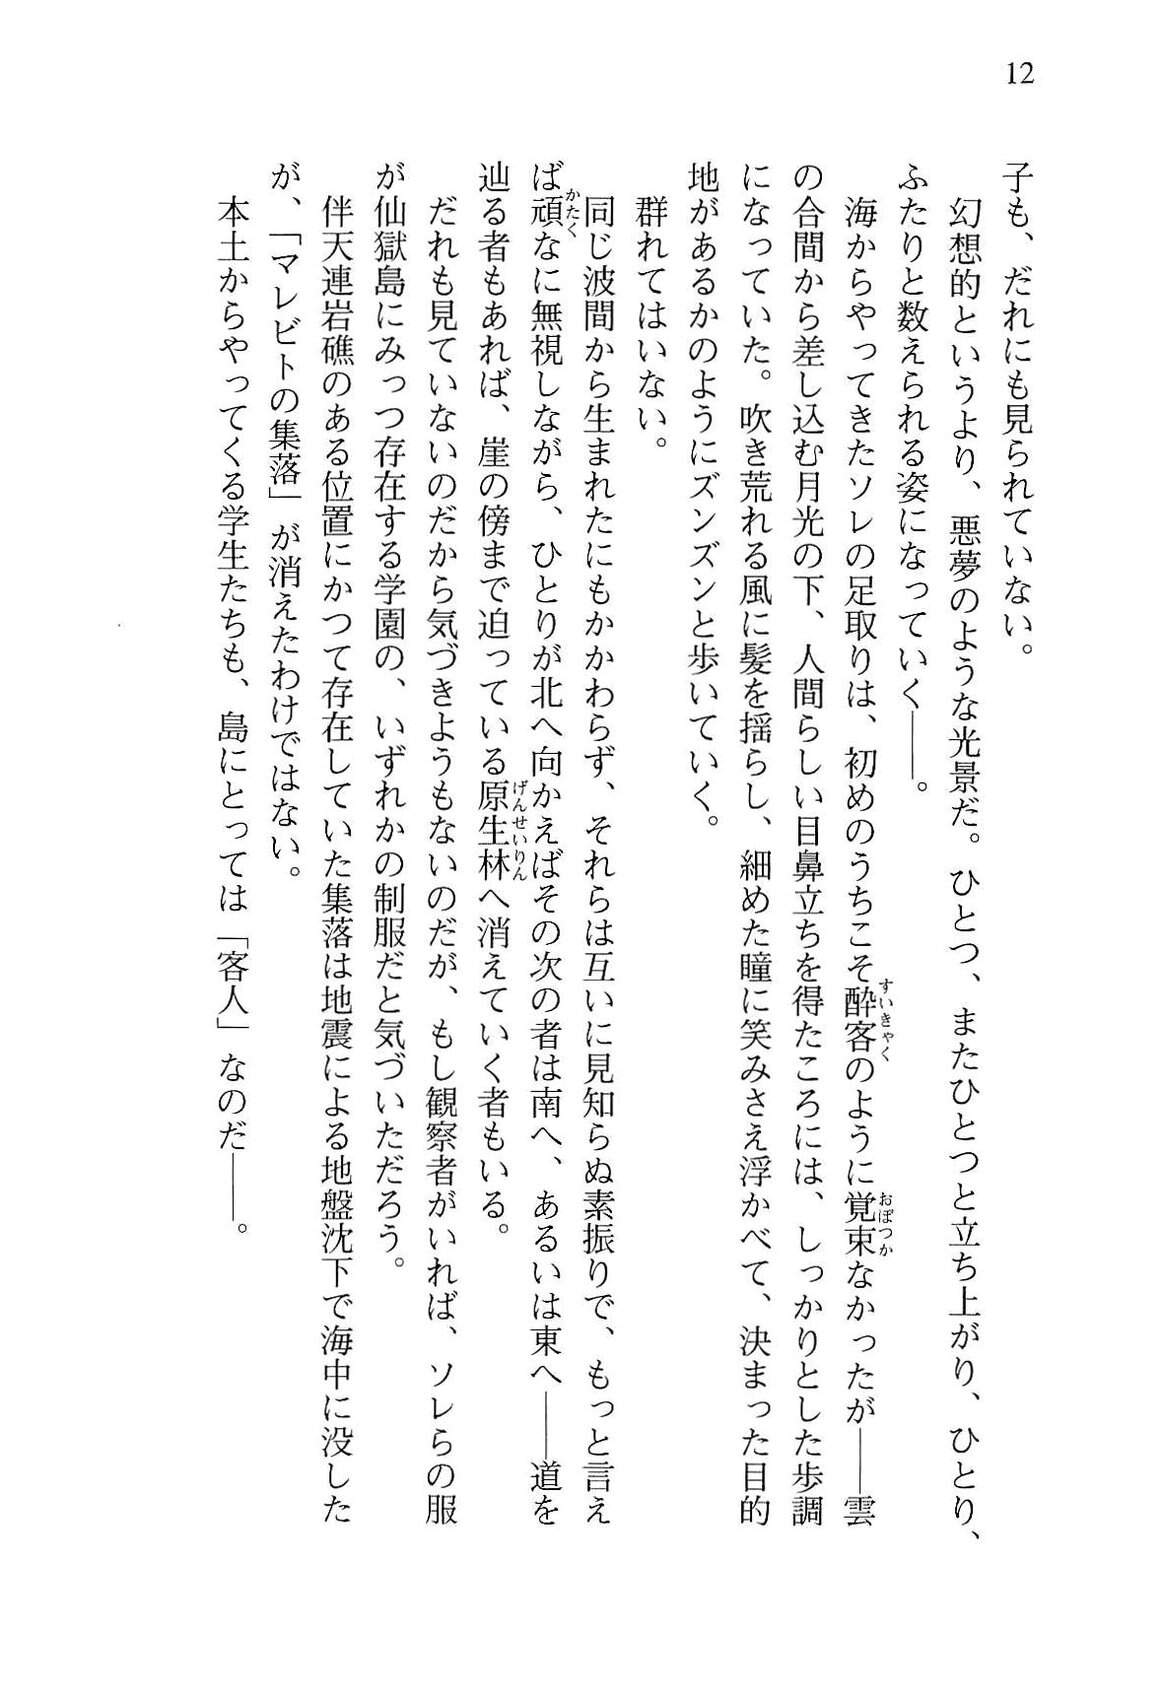 12
子も、だれにも見られていない。
幻想的というより、悪夢のような光景だ。ひとつ、またひとつと立ち上がり、ひとり、
ふたりと数えられる姿になっていく――。
海からやってきたソレの足取りは、初めのうちこそ酔客のように覚束なかったが――雲
の合間から差し込む月光の下、人間らしい目鼻立ちを得たころには、しっかりとした歩調
になっていた。吹き荒れる風に髪を揺らし、細めた瞳に笑みさえ浮かべて、決まった目的
地があるかのようにズンズンと歩いていく。
群れてはいない。
同じ波間から生まれたにもかかわらず、それらは互いに見知らぬ素振りで、もっと言え
ば頑なに無視しながら、ひとりが北へ向かえばその次の者は南へ、あるいは東へ――道を
辿る者もあれば、崖の傍まで迫っている原生林へ消えていく者もいる。
だれも見ていないのだから気づきようもないのだが、もし観察者がいれば、ソレらの服
が仙獄島にみっつ存在する学園の、いずれかの制服だと気づいただろう。
伴天連岩礁のある位置にかつて存在していた集落は地震による地盤沈下で海中に没した
が、「マレビトの集落」が消えたわけではない。
本土からやってくる学生たちも、島にとっては「客人」なのだ――。
すいきゃく
おぼつか
かたく
げんせいりん